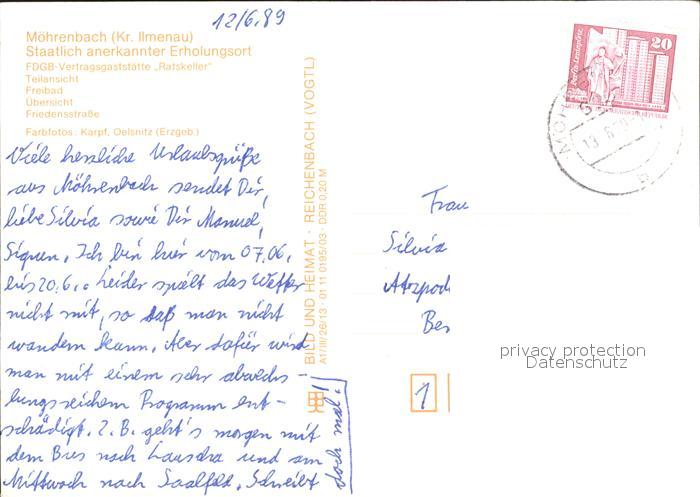 12/6.89
Möhrenbach (Kr. Ilmenau)
Staatlich anerkannter Erholungsort
FDGB-Vertragsgaststätte „Ratskeller"
Teilansicht
Freibad
Übersicht
Friedensstraße
Farbfotos: Karpf, Oelsnitz (Erzgeb.)
Viele herzliche Urlaubsgrüße
aus Möhrenbach sendet Dir,
liebe Silvia sowie Dir Manuel,
Ich bin hier vom 07.06.
bis 20.6.. Leider spielt das Wetter
nicht mit, so daß man nicht
wandern kann. Aber dafür wird
man mit einem sehr abwechs-
lungsreichem Programm ent-
schädigt. Z.B. geht's morgen mit
dem Bus nach Lauscha und am
Mittwoch nach Saalfeld. Schreibt
doch mal!
BILD UND HEIMAT · REICHENBACH (VOGTL)
A1/III/26/13 · 01 11 0195/03 · DDR 0,20 M
20
Frau
Silvia
Ber
1
privacy protection
Datenschutz